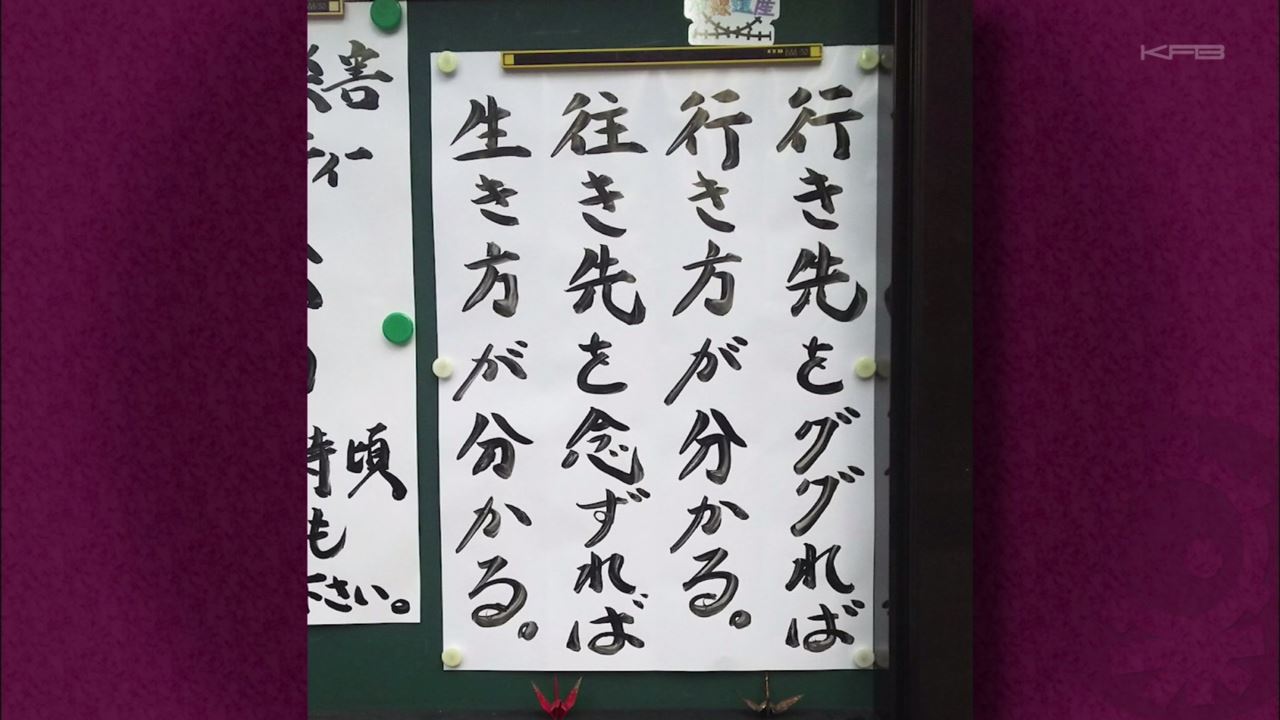 行き先をググれば
行き方が分かる。
往き先を念ずれば
生き方が分かる。
害
ディー
時頃
も
下さい。
KFB